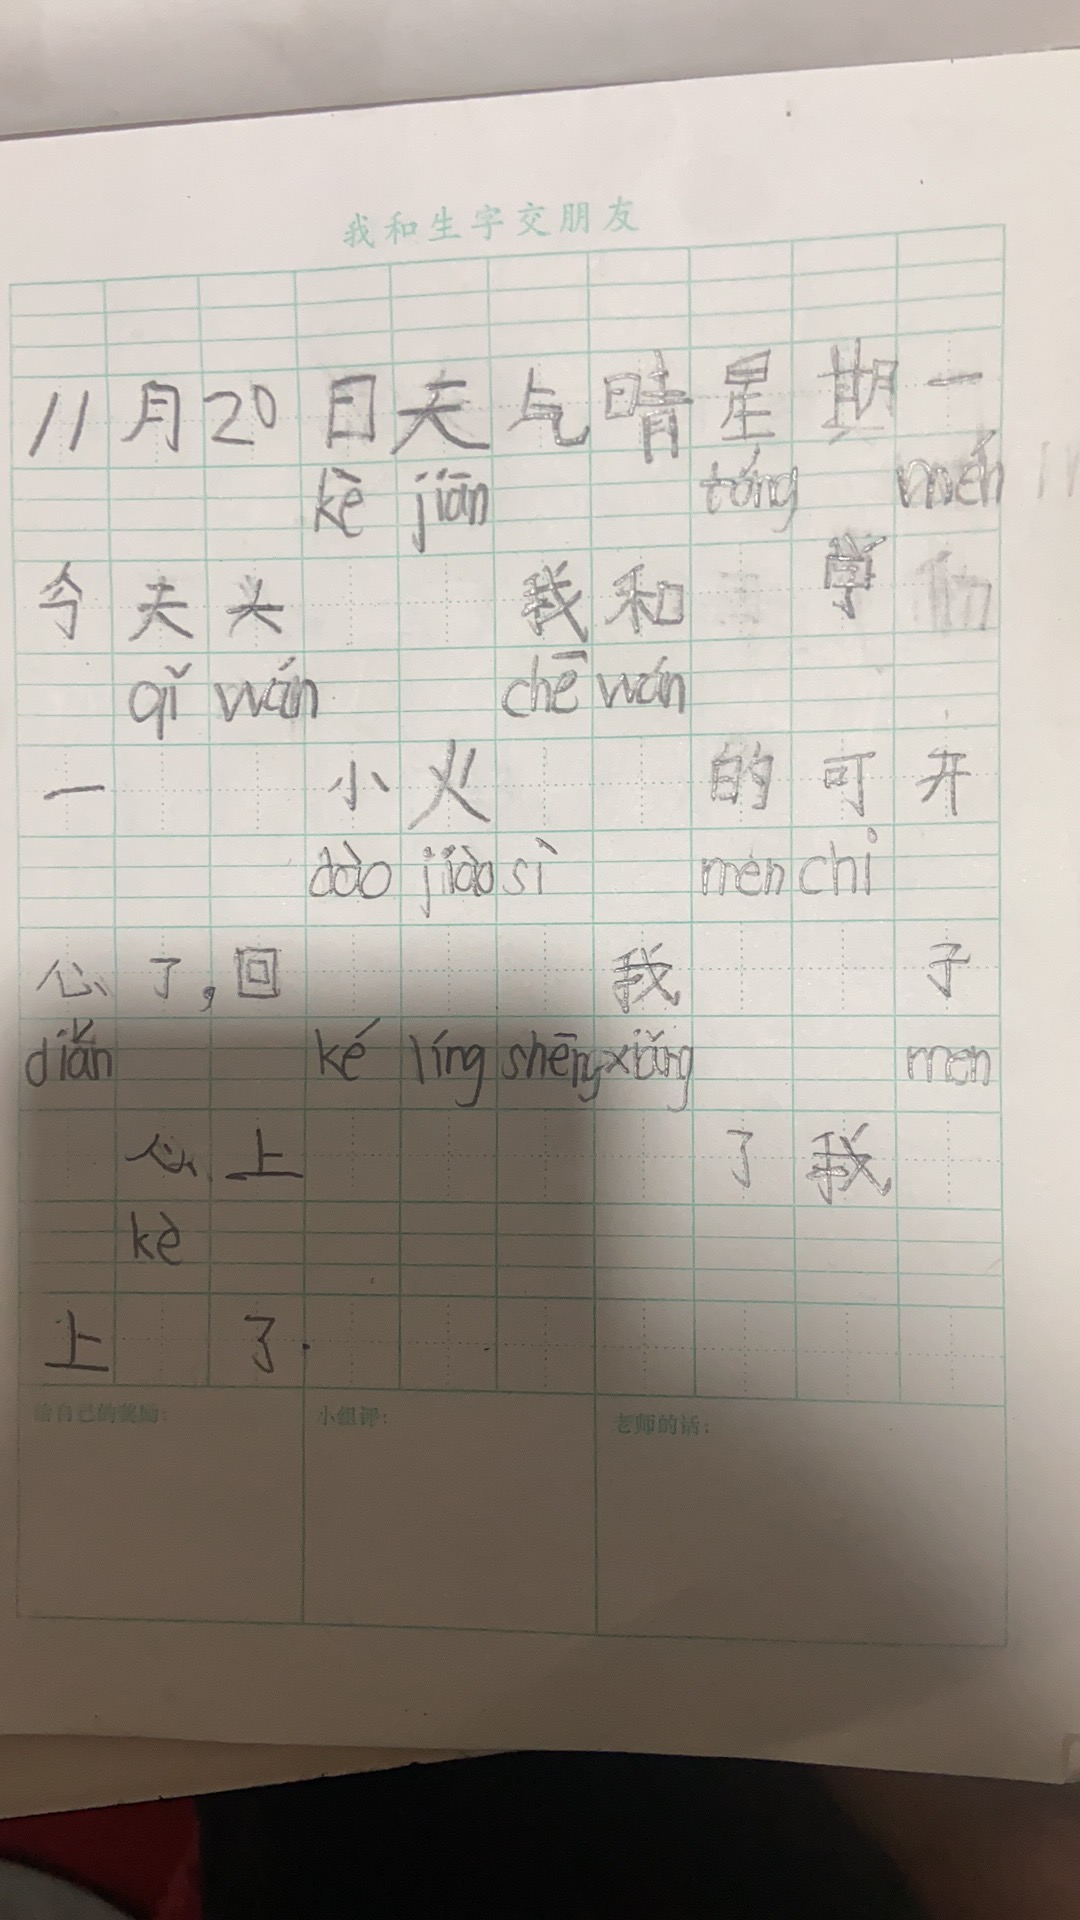 我和生字交朋友
11月20日天气晴星期一
kè jiān tóng mén
今天头我和学们
qǐ wán chē wán
一小火的可开
dào jiào sì men chi
心了,回我子
diǎn ké líng shēng xiǎng men
心上了我
kè
上了.
给自己的奖励: 小组评: 老师的话: